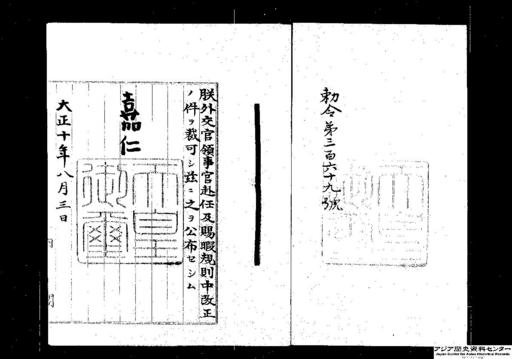 勅令第三百六十九號
朕外交官領事官赴任及賜暇規則中改正
ノ件ヲ裁可シ茲ニ之ヲ公布セシム
嘉仁
天皇
御璽
大正十年八月三日
アジア歴史資料センター
Japan Center for Asian Historical Records